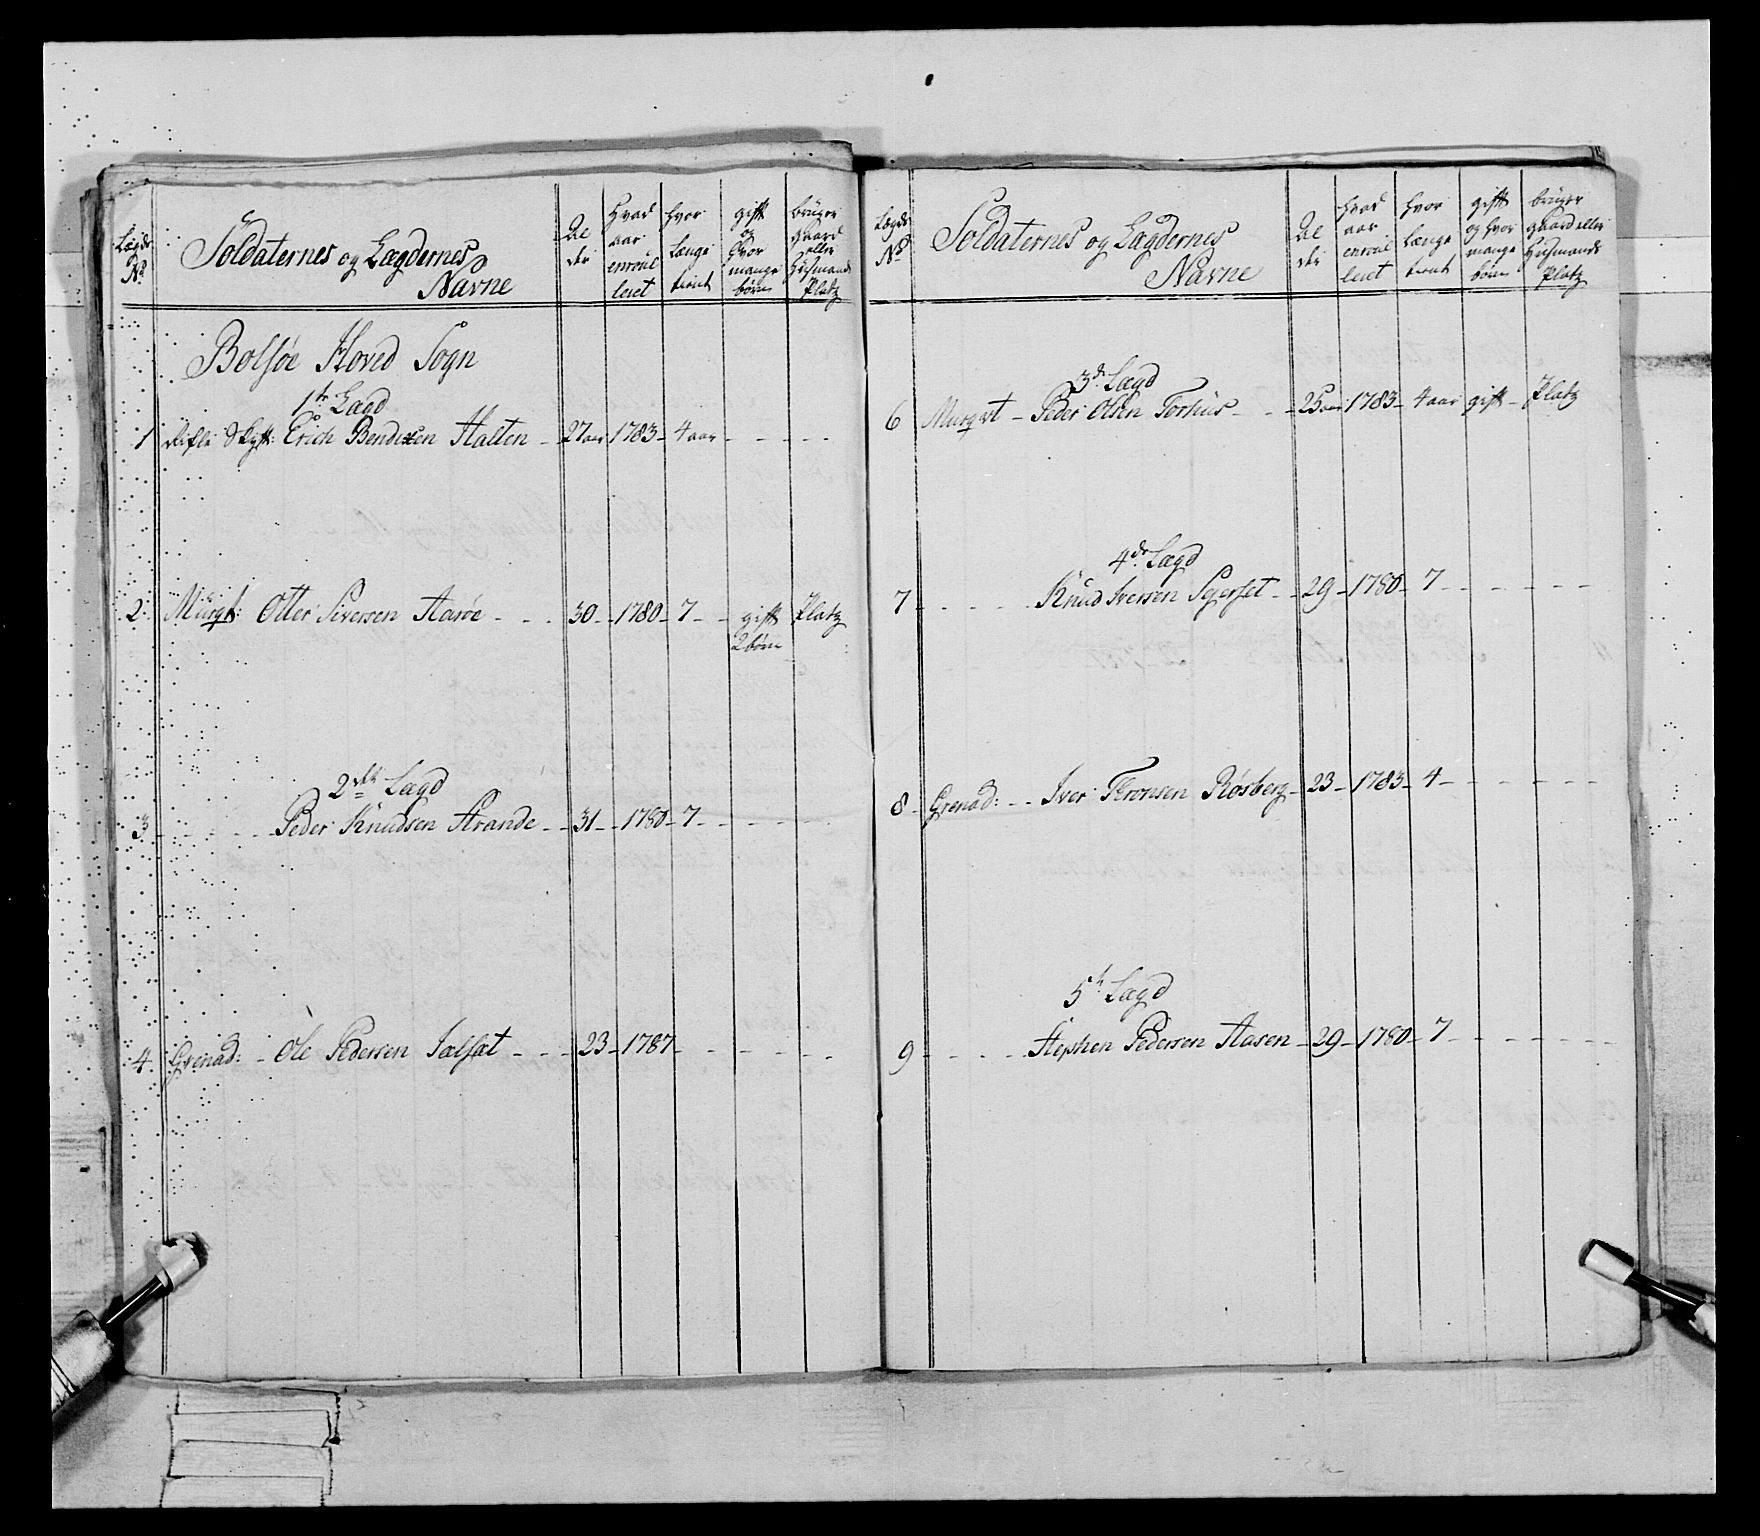 Lægds No
Soldaternes og Lægdernes Navne
Al der
hvad aar enroul leret
hvor længe tient
gift og hvor mange börn
bruger gaard eller Huusmands Platz
Bolsöe Hoved Sogn
1te Lægd
1 Rifle Skytt: Erich Bendixen Halten - 27 aar 1783 - 4 aar - - - -
2. Murqt: Otter Siversen Aaröe - - - 30 - 1780 - 7 - - gift Platz
2 börn
2den Lægd
3 - - - - Peder Knudsen Strande - - 31 - 1780 - 7 - - - - -
4. Grenad: - Ole Pedersen Jalsæt - - - 23 - 1787 - - - - - -
Lægds No
Soldaternes og Lægdernes Navne
Al der
hvad aar enroul leret
hvor længe tient
gift og hvor mange börn
bruger gaard eller Huusmands Platz
3de Lægd
6 Murqvt - Peder Olsen Torhus - - - 25 aar 1783 - 4 aar gift - Platz
4de Lægd
7 - - - - - Knud Iversen Sejerset - - 29 - 1780 - 7 - - - - -
8 - Grenad: - - Iver Tronsen Rösberg - 23 - 1783 - 4 - - - - -
5te Lægd
9 - - - - - Stephen Pedersen Aasen - 29 - 1780 - 7 - - - - - -